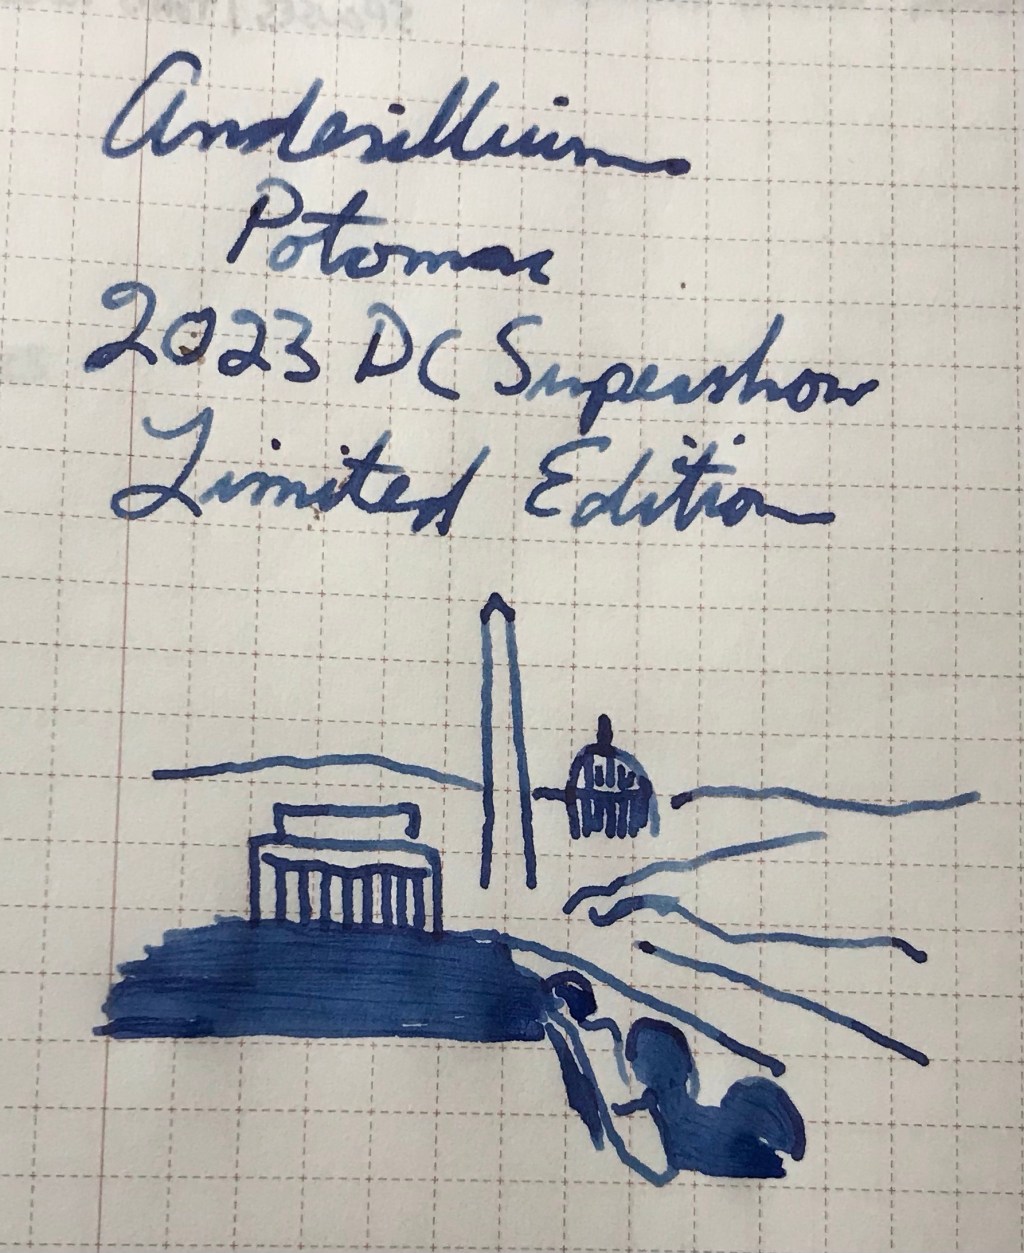 Anderillium
Potomac
2023 DC Supershow
Limited Edition